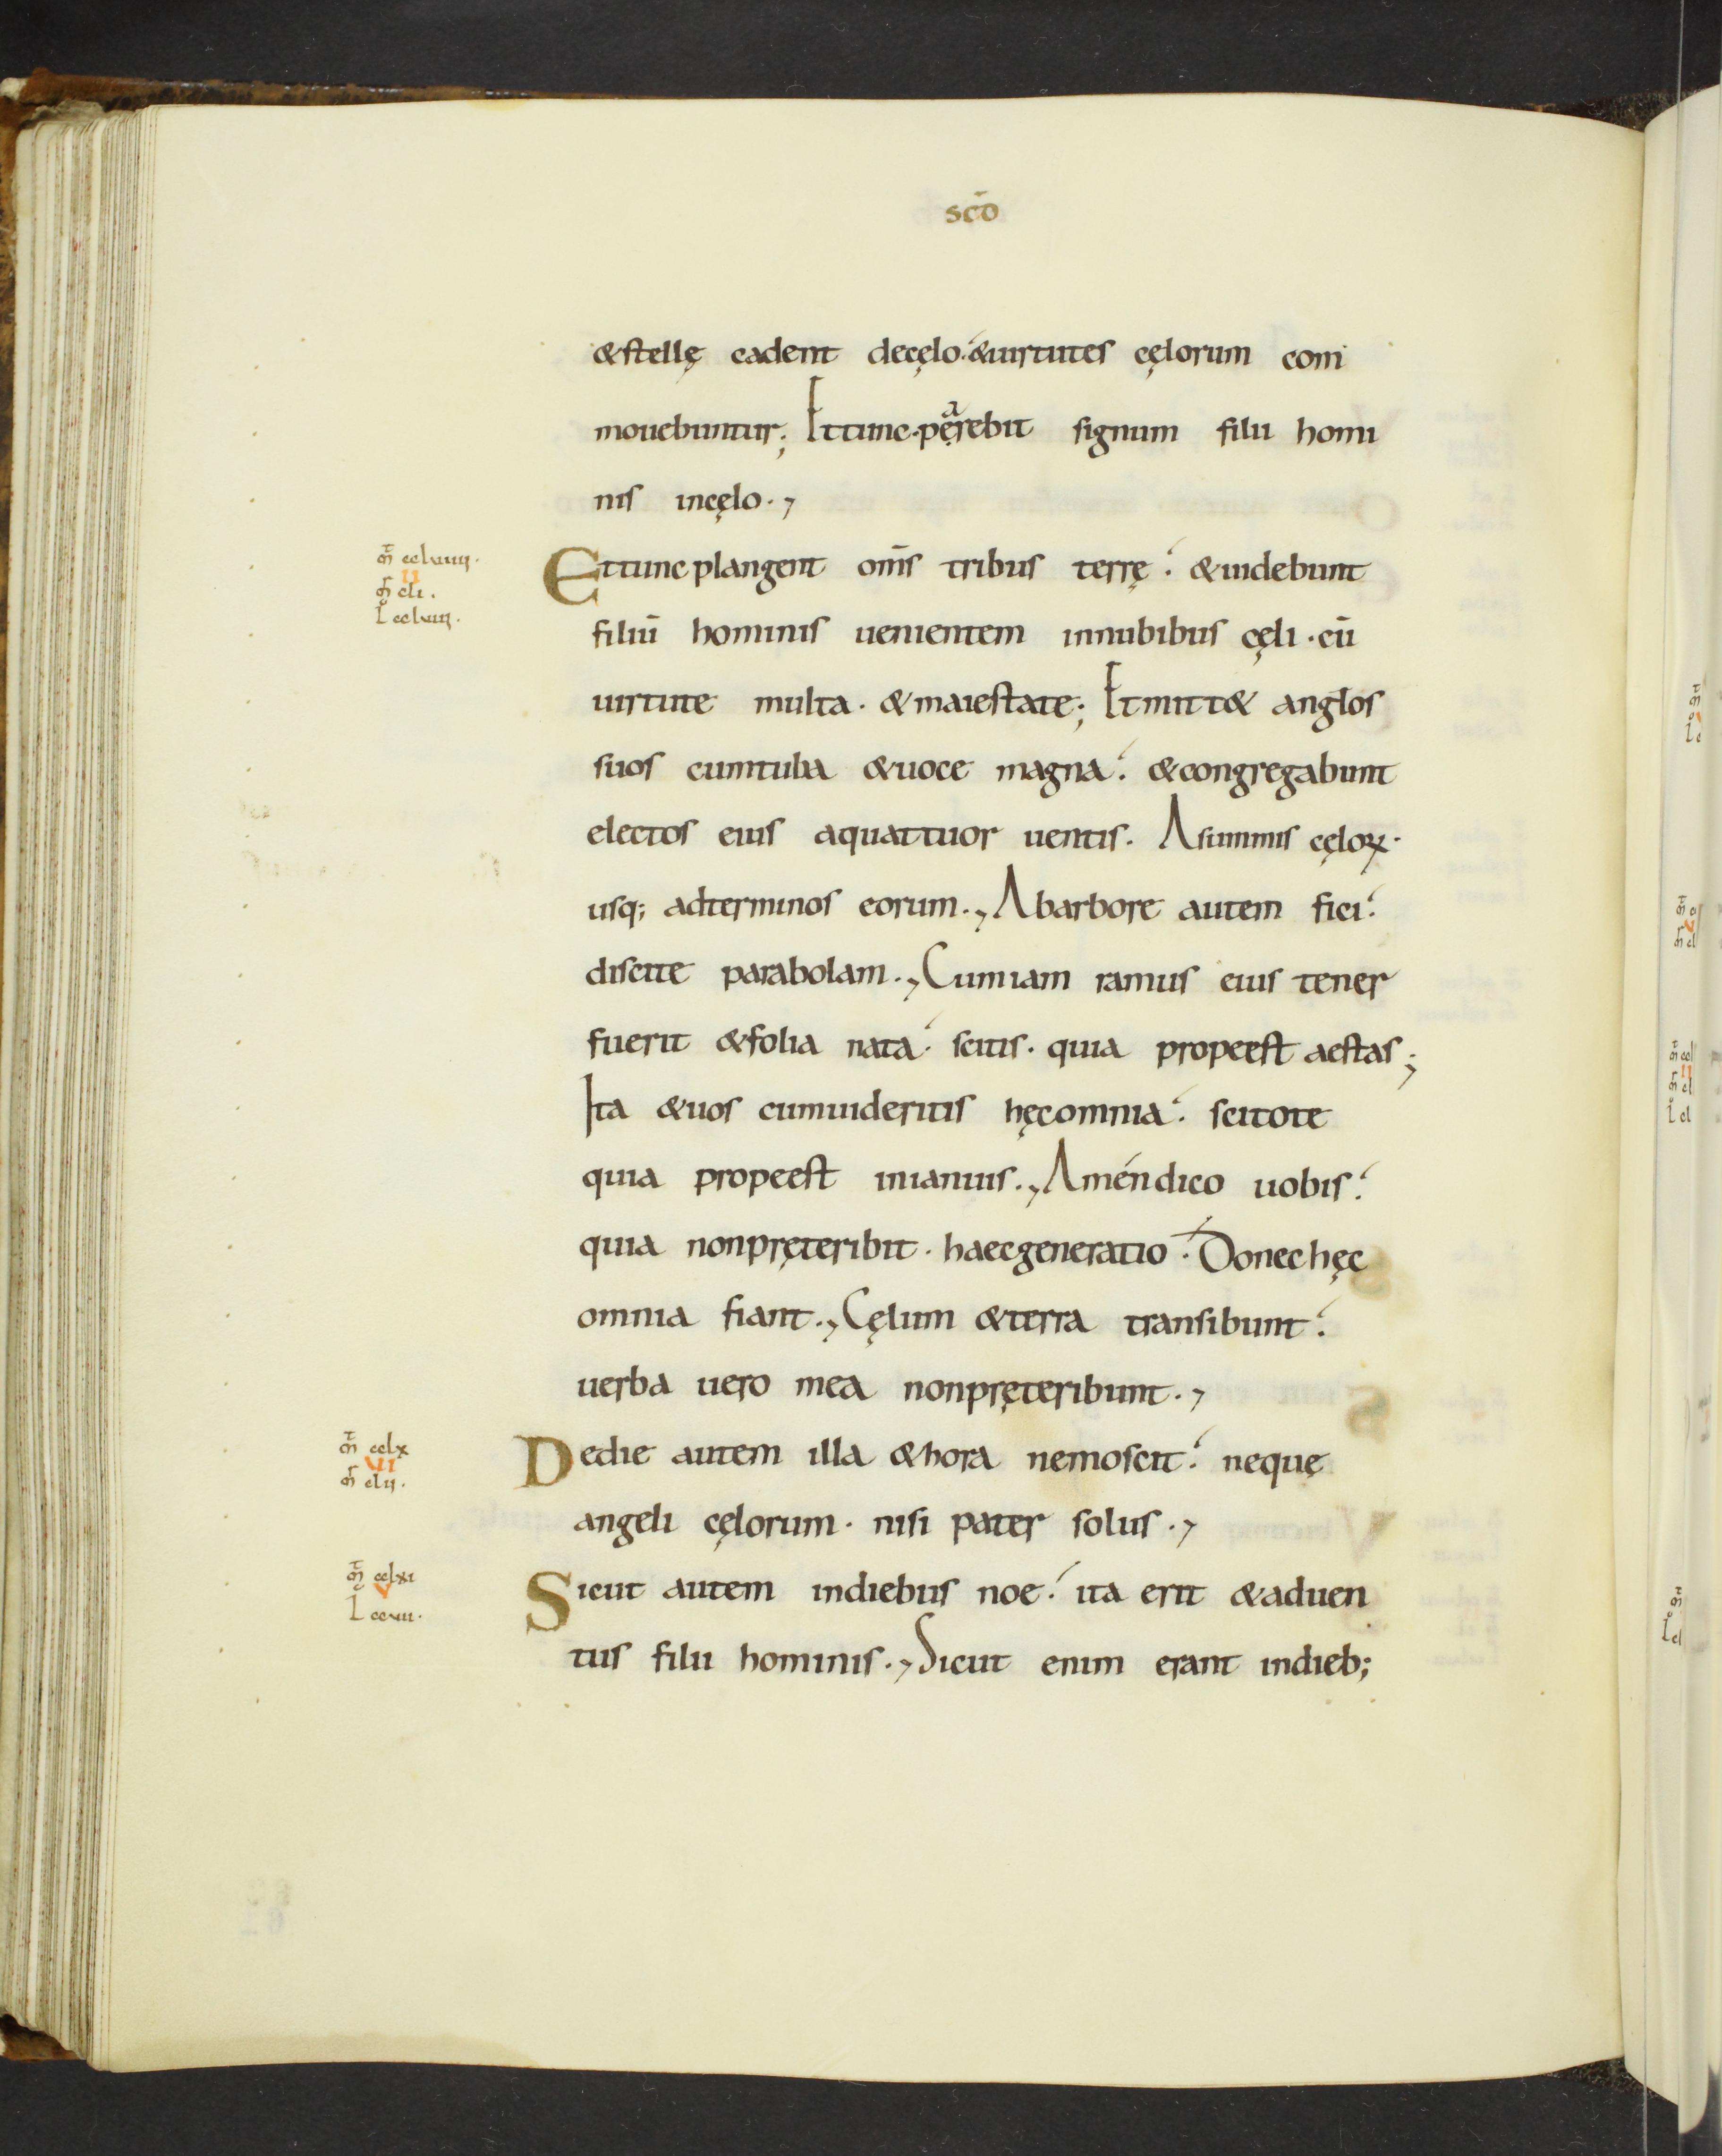 scō
&stellę cadent decęlo. &uirtutes cęlorum com
mouebuntur; Et tunc. pęrebit signum filii homi
nis incęlo.,
mt̄ cclviiii.
II
mr̄ cli.
l cclviii.
Ettunc plangent om̄s tribus terrę. &uidebunt
filiū hominis uenientem innubibus cęli. cū
uirtute multa. &maiestate; Et mitt& angłos
suos cumtuba &uoce magna. &congregabunt
electos eius aquattuor uentis. Asummis cęloꝝ.
usq; adterminos eorum., Abarbore autem fici.
discite parabolam., Cumiam ramus eius tener
fuerit &folia nata. scitis. quia propeest aestas;
Ita &uos cumuideritis hęcomnia. scitote
quia propeest inianuis., Améndico uobis.
quia nonpręteribit. haecgeneratio. Donec hęc
omnia fiant., Cęlum &terra transibunt.
uerba uero mea nonpręteribunt.,
mt̄ cclx
VI
mr̄ clii.
Dedie autem illa &hora nemoscit. nequę
angeli cęlorum. nisi pater solus.,
mt̄ cclxi
V
l ccvii.
Sicut autem indiebus noe. ita erit &aduen
tus filii hominis., Sicut enim erant indieb;